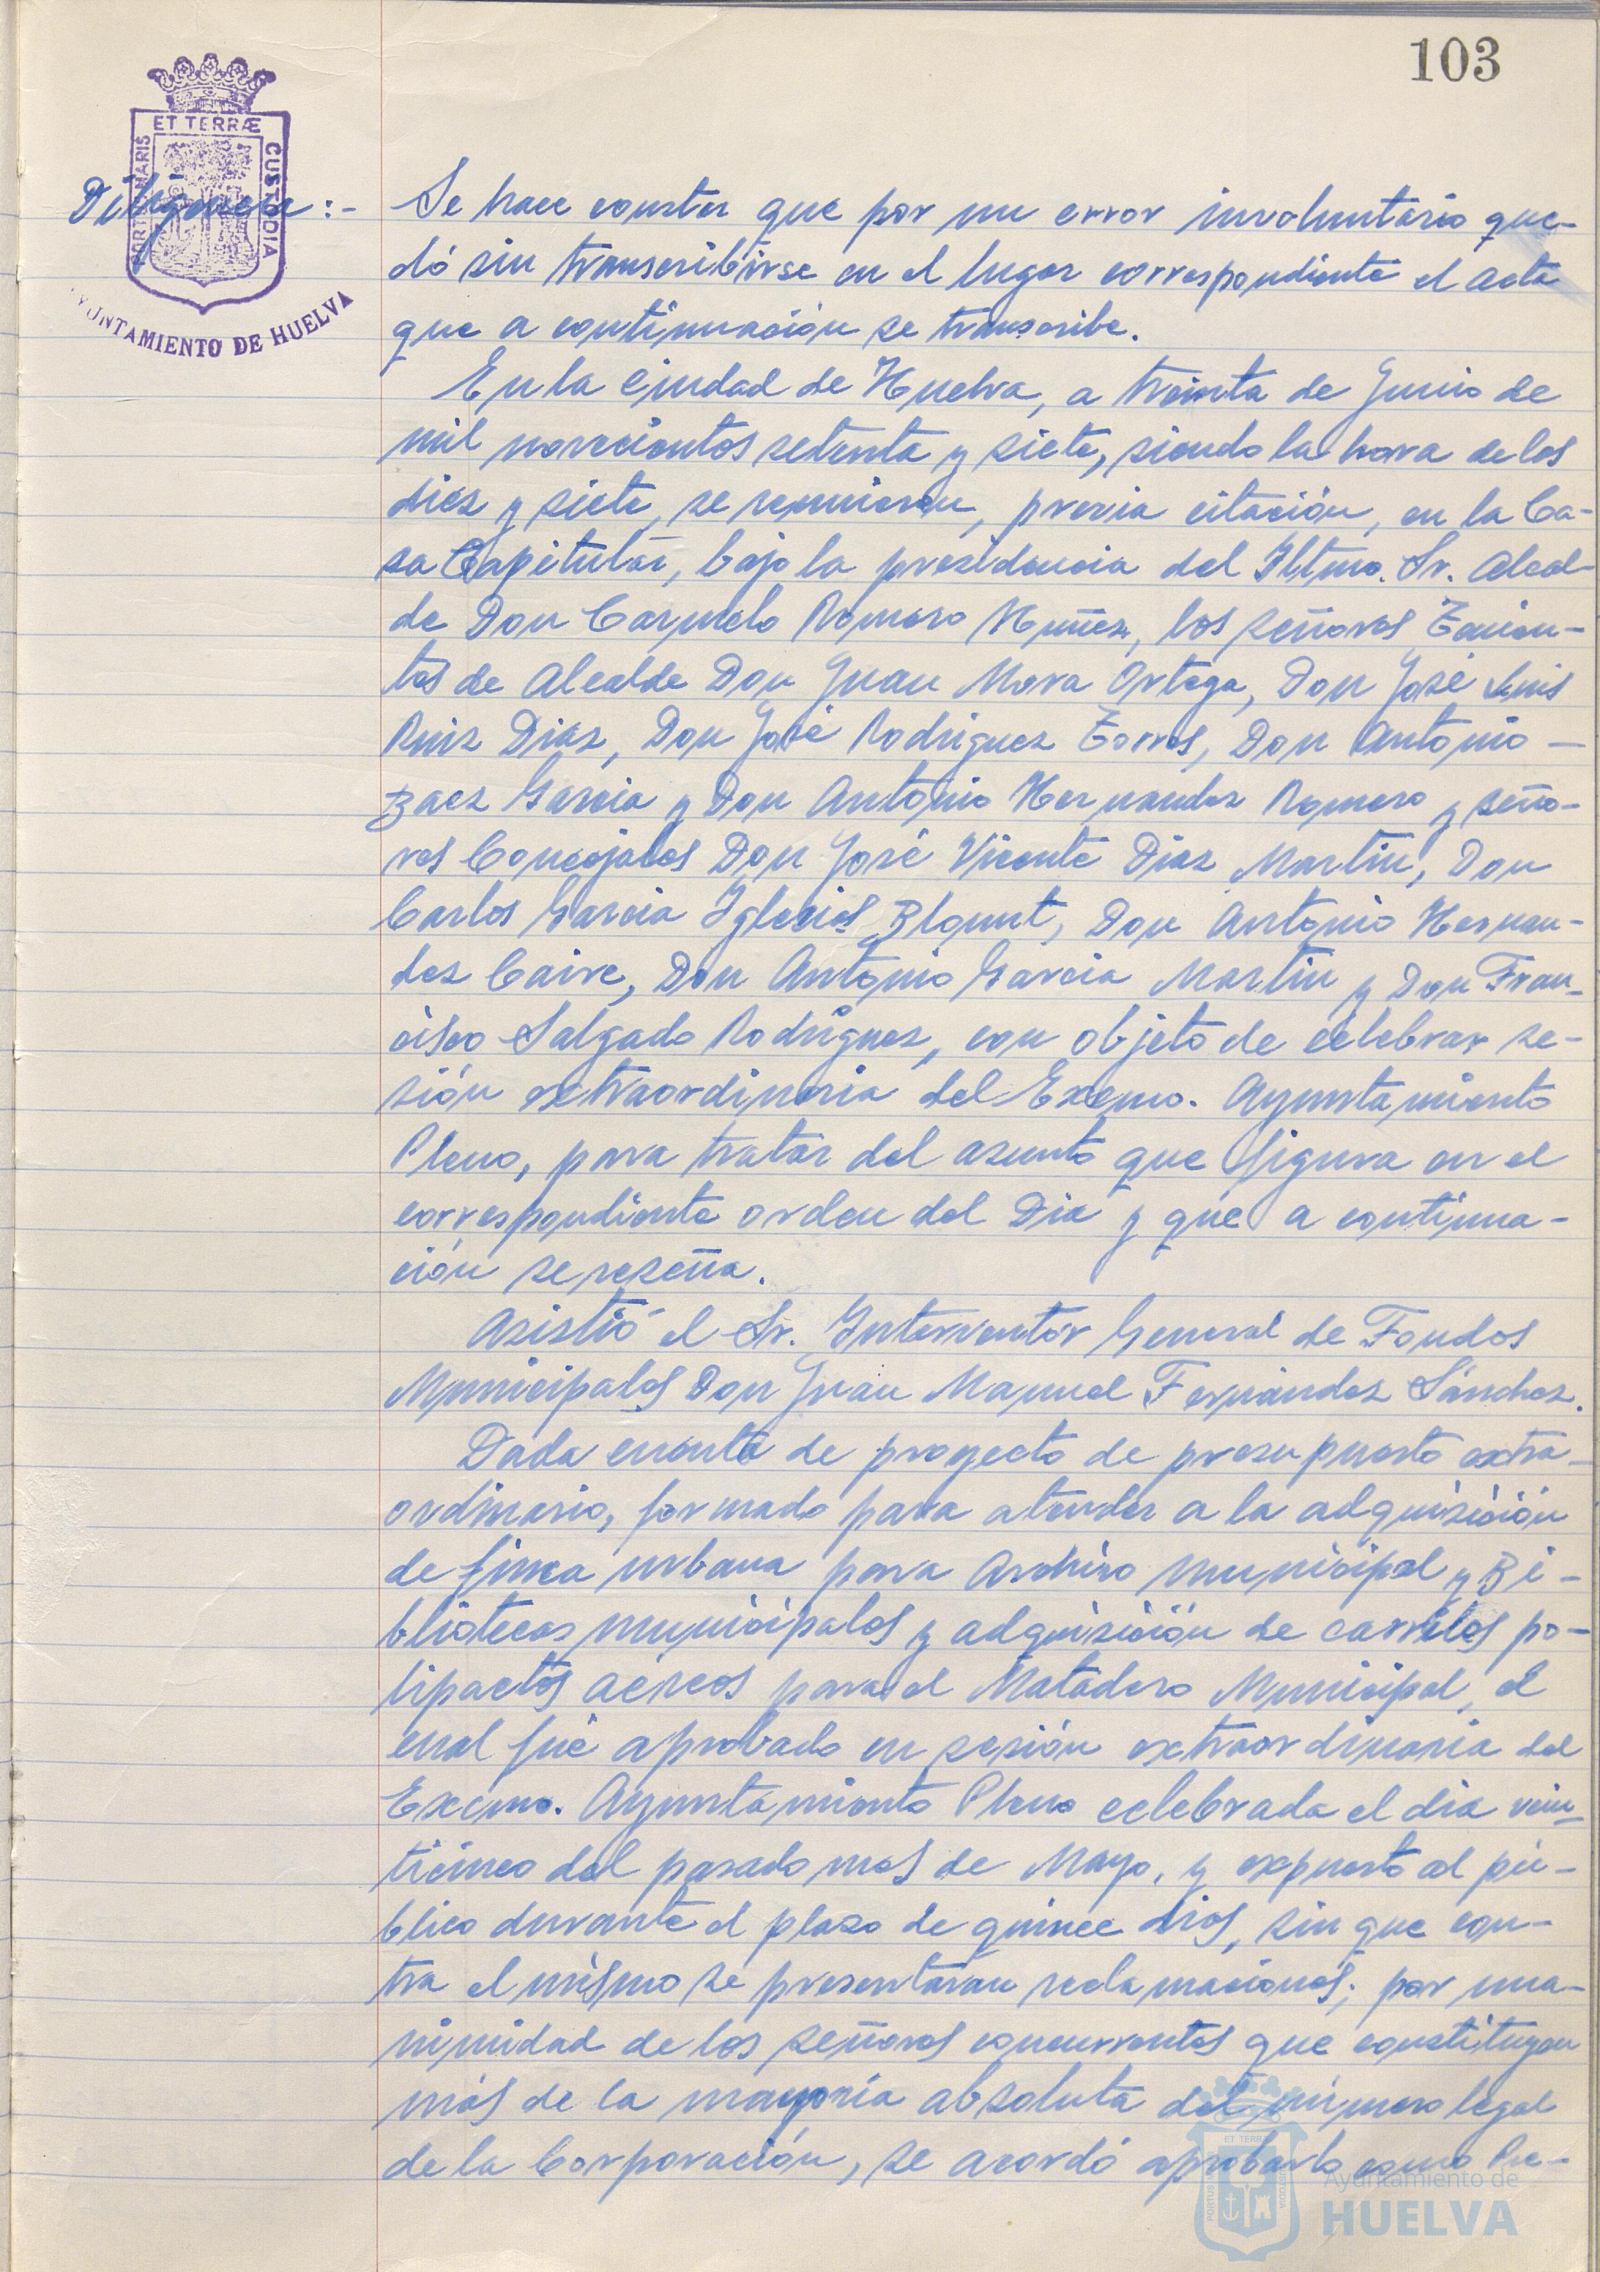 103
ET TERRÆ
PORTUS MARIS
CUSTODIA
AYUNTAMIENTO DE HUELVA
Diligencia:- Se hace constar que por un error involuntario que-
dó sin transcribirse en el lugar correspondiente el acta
que a continuación se transcribe.
En la Ciudad de Huelva, a treinta de Junio de
mil novecientos setenta y siete, siendo la hora de las
diez y siete, se reunieron, previa citación, en la Ca-
sa Capitular, bajo la presidencia del Iltmo. Sr. Alcal-
de Don Carmelo Romero Nuñez, los señores Tenien-
tes de Alcalde Don Juan Mora Ortega, Don José Luis
Ruiz Diaz, Don José Rodriguez Torres, Don Antonio —
Baez Garcia y Don Antonio Hernandez Romero y seño-
res Concejales Don José Vicente Diaz Martin, Don
Carlos Garcia Iglesias Blount, Don Antonio Hernan-
dez Caire, Don Antonio Garcia Martin y Don Fran-
cisco Salgado Rodriguez, con objeto de celebrar se-
sión extraordinaria del Excmo. Ayuntamiento
Pleno, para tratar del asunto que figura en el
correspondiente orden del Dia y que a continua-
ción se reseña.
Asistió el Sr. Interventor General de Fondos
Municipales Don Juan Manuel Fernández Sánchez.
Dada cuenta de proyecto de presupuesto extra-
ordinario, formado para atender a la adquisición
de finca urbana para Archivo Municipal y Bi-
bliotecas municipales y adquisición de carriles po-
lipactos aéreos para el Matadero Municipal, el
cual fué aprobado en sesión extraordinaria del
Excmo. Ayuntamiento Pleno celebrada el dia vein-
ticinco del pasado mes de Mayo, y expuesto al pú-
blico durante el plazo de quince dias, sin que con-
tra el mismo se presentaran reclamaciones; por una-
nimidad de los señores concurrentes que constituyen
más de la mayoría absoluta del número legal
de la Corporación, se acordó aprobarlo como Pre-
Ayuntamiento de
HUELVA